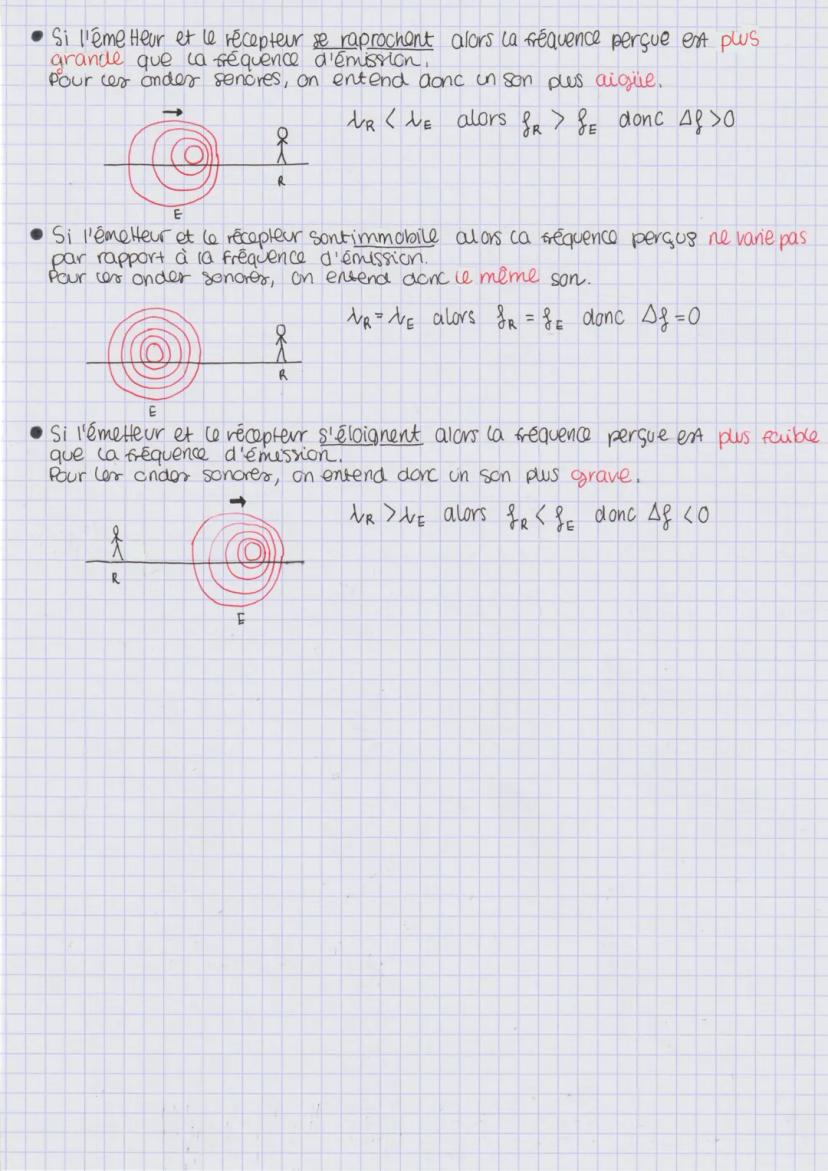 • Si l'émetteur et le récepteur se raprochent alors la fréquence perçue est plus
grande que la fréquence d'émission.
Pour les ondes sonores, on entend donc un son plus aigüe.
λR < λE alors fR > fE donc Δf >0
R
E
• Si l'émetteur et le récepteur sont immobile alors la fréquence perçus ne varie pas
par rapport à la fréquence d'émission.
Pour les ondes sonores, on entend donc le même son.
λR = λE alors fR = fE donc Δf =0
R
E
• Si l'émetteur et le récepteur s'éloignent alors la fréquence perçue est plus faible
que la fréquence d'émission.
Pour les ondes sonores, on entend donc un son plus grave.
λR > λE alors fR < fE donc Δf <0
R
E